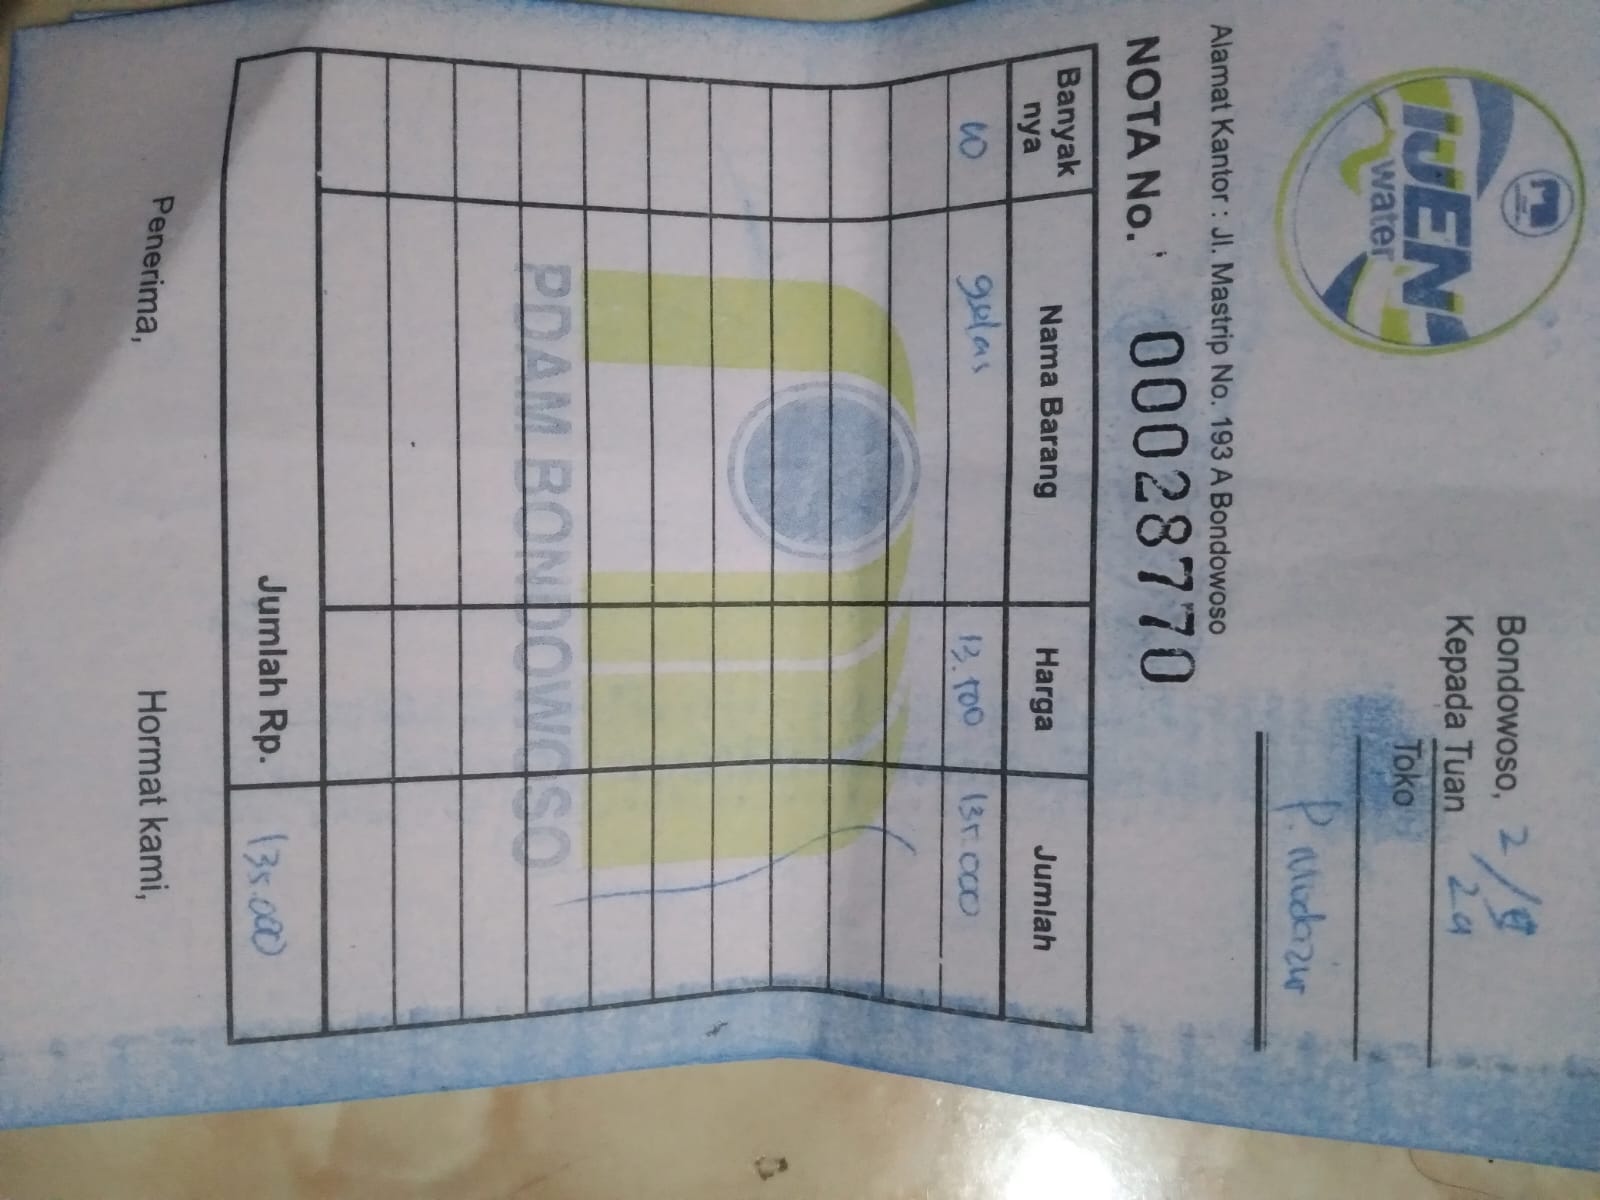 IJEN
water
Bondowoso, 2/9 24
Kepada Tuan
Toko
Alamat Kantor : Jl. Mastrip No. 193 A Bondowoso
NOTA No. 00028770
Banyak nya Nama Barang Harga Jumlah
10 gelas 13.500 135.000
PDAM BONDOWOSO
Jumlah Rp. 135.000
Penerima, Hormat kami,